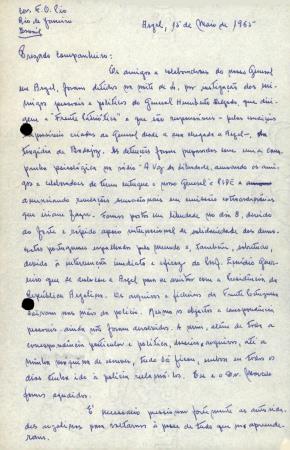 cos. E.O. Rio
Rio de Janeiro
Brasil
Argel, 15 de Maio de 1965
Prezado Companheiro:
Os amigos e colaboradores do nosso General
em Argel, foram detidos na noite de 2, por instigação dos ini-
migos pessoais e políticos do General Humberto Delgado, que diri-
gem a "Frente Patriótica" e que são responsáveis – pelas condições
impossíveis criadas ao General desde a sua chegada a Argel –, da
tragédia de Badajoz. As detenções foram preparadas com uma cam-
panha psicológica na rádio "A Voz da Liberdade", acusando os ami-
gos e colaboradores de terem entregue o nosso General à PIDE e
anunciando revelações sensacionais em emissões extraordinárias
que iriam fazer. Fomos postos em liberdade, no dia 8, devido
ao forte e rápido apoio internacional de solidariedade dos demo-
cratas portugueses espalhados pelo mundo e, também, sobretudo,
devido à intervenção imediata e eficaz do Emídio Guer-
reiro que se deslocou a Argel para se avistar com a Presidência da
República Argelina. Os arquivos e ficheiros da Frente Portuguesa
ficaram nas mãos da polícia. Mesmo os objectos e correspondência
pessoais ainda não foram devolvidos. A mim, além de toda a
correspondência particular e política, dossiers, arquivos, até a
minha máquina de escrever, tudo lá ficou, embora eu todos os
dias tenha ido à polícia reclamá-los. Eu e o Dr.
fomos agredidos.
É necessário pressionar fortemente as autorida-
des argelinas para voltarmos à posse de tudo que nos apreende-
ram.